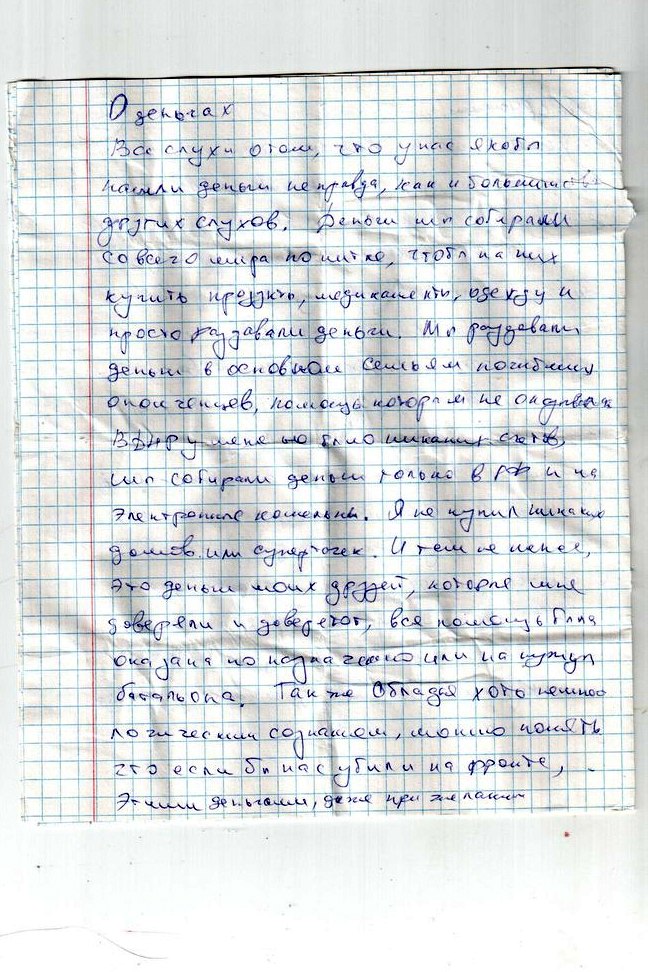 О деньгах
Все слухи о том, что у нас якобы
нашли деньги неправда, как и большинство
других слухов. Деньги мы собирали
со всего мира по нитке, чтобы на них
купить продукты, медикаменты, одежду и
просто раздавали деньги. Мы раздавали
деньги в основном семьям погибших
ополченцев, помощь которым не оказывал
В ДНР у меня не было никаких счетов,
мы собирали деньги только в РФ и на
электронные кошельки. Я не купил никаких
домов или суперточек. И тем не менее,
это деньги моих друзей, которые мне
доверяли и доверяют, вся помощь была
оказана по назначению или на нужды
батальона. Также обладая хоть немного
логическим сознанием, можно понять
что если бы нас убили на фронте,
Этими деньгами, даже при желании